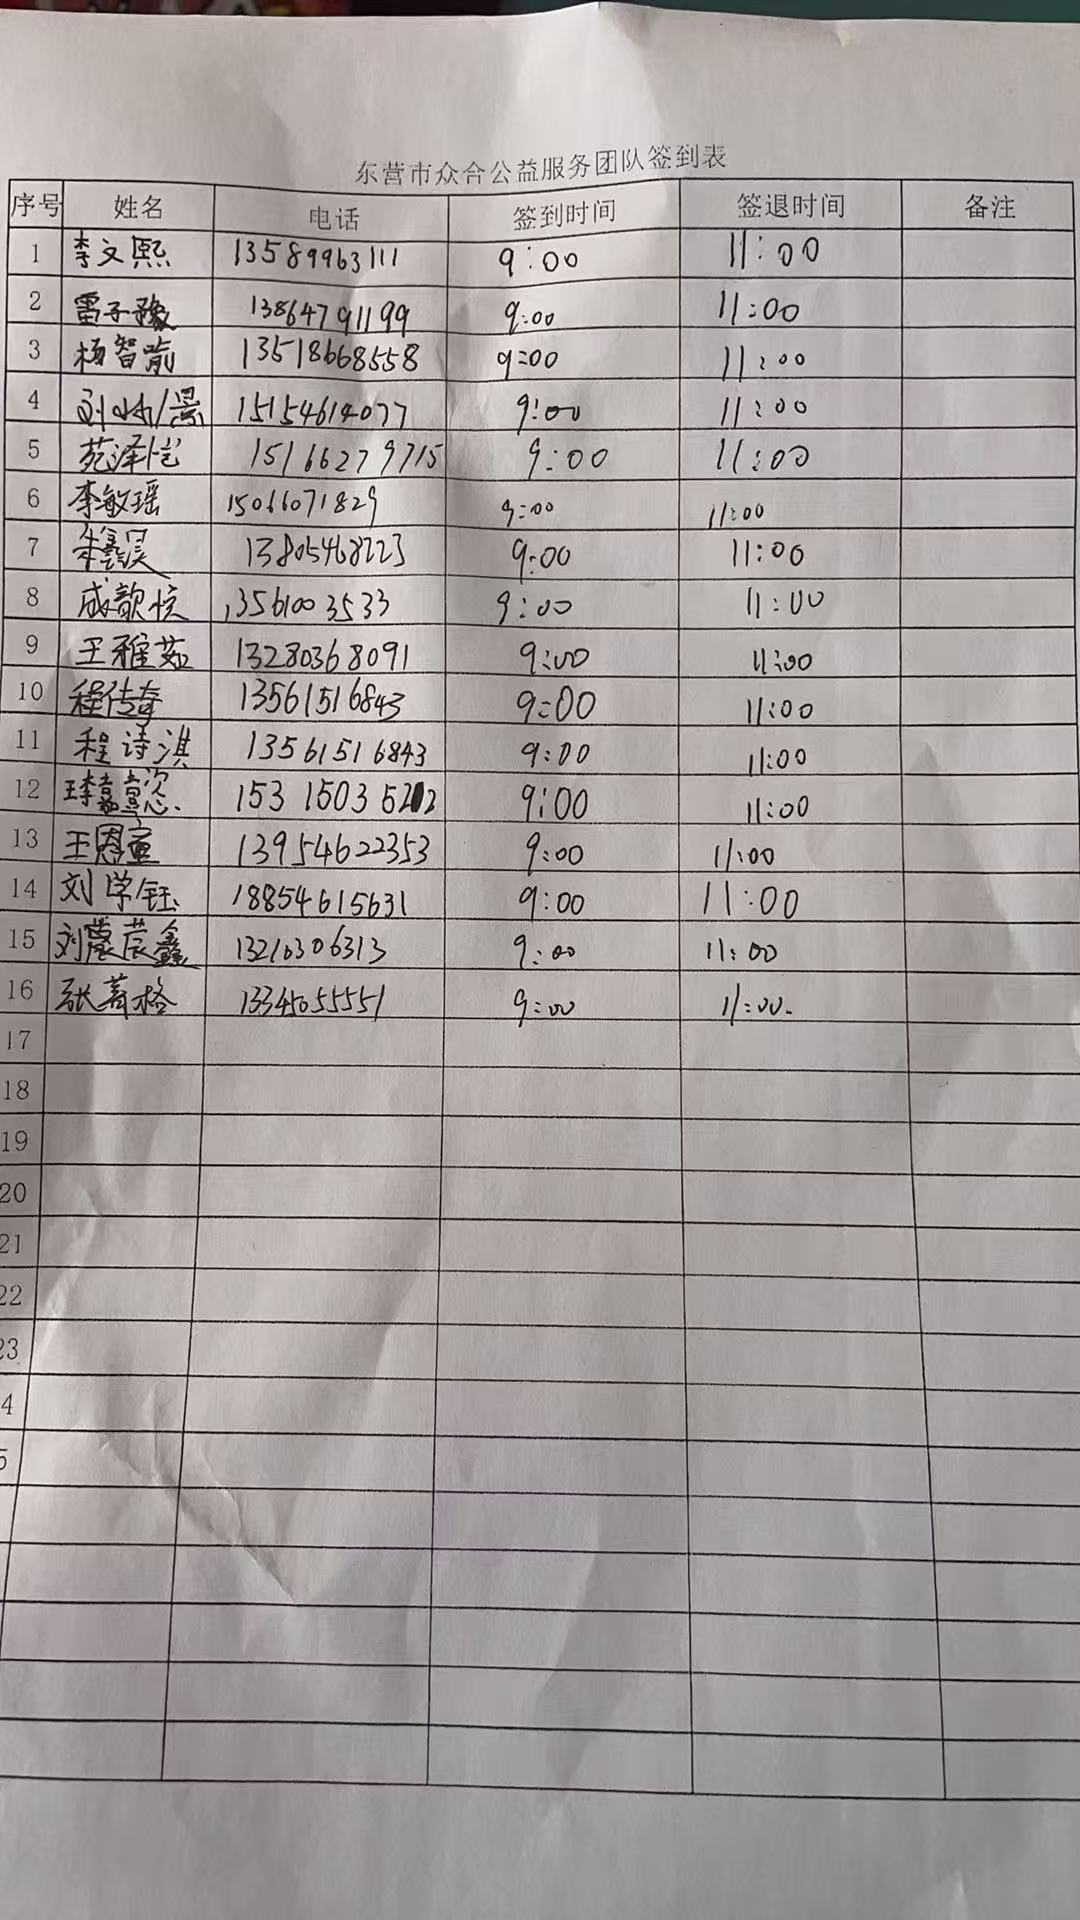 东营市众合公益服务团队签到表
序号 姓名 电话 签到时间 签退时间 备注
1 李文熙 13589963111 9:00 11:00
2 雷子豫 13864791199 9:00 11:00
3 杨智喻 13518668558 9:00 11:00
4 15154614077 9:00 11:00
5 苑泽恺 15166279715 9:00 11:00
6 李敏瑶 15066071829 9:00 11:00
7 13805468223 9:00 11:00
8 成歆悦 13561003533 9:00 11:00
9 王雅茹 13280368091 9:00 11:00
10 程传奇 13561516843 9:00 11:00
11 程诗淇 13561516843 9:00 11:00
12 9:00 11:00
13 王恩童 13954622353 9:00 11:00
14 刘学钰 18854615631 9:00 11:00
15 9:00 11:00
16 9:00 11:00
17
18
19
20
21
22
23
4
5